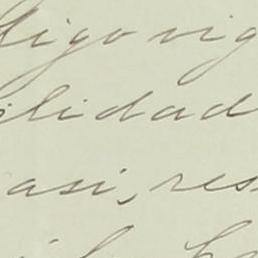 digo vig
lidad
asi, res